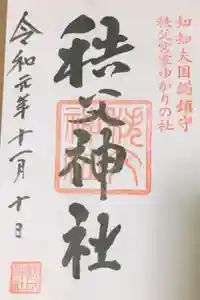 知知夫国総鎮守
秩父宮家ゆかりの社
秩父神社
令和元年十一月十日